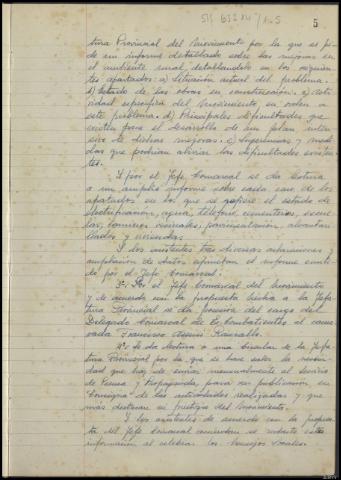 5
tura Provincial del Movimiento por la que se pi-
de un informe detallado sobre las mejoras en
el ambiente rural, detallandolo en los siguien-
tes apartados: a) Situación actual del problema.
b) Estado de las obras en construcción. c) Acti-
vidad específica del Movimiento en orden a
este problema. d) Principales dificultades que
existen para el desarrollo de un plan inten-
sivo de dichas mejoras. e) Sugerencias y medi-
das que podrian aliviar las dificultades existen-
tes.
Y por el Jefe Comarcal se da lectura
a un amplio informe sobre cada uno de los
apartados en los que se refiere el estado de
electrificación, agua, teléfono, cementerios, escue-
las, caminos vecinales, pavimentación, alcantari-
llados y viviendas.
Y los asistentes tras diversas
ampliación de datos el informe emiti-
do por el Jefe Comarcal.
3º Por el Jefe Comarcal del Movimiento
y de acuerdo con la propuesta hecha a la Jefa-
tura Provincial se da posesión del cargo de
Delegado Comarcal de Ex Combatientes al cama-
rada Francisco
4º Se da lectura a una circular de la Jefa-
tura Provincial por la que se hace saber la necesi-
dad que hay de enviar mensualmente al Servicio
de Prensa y Propaganda, para su publicación en
Consigna de las actividades realizadas y que
mas destacan en prestigio del Movimiento.
Y los asistentes de acuerdo con la propues-
ta del Jefe Comarcal acuerdan se redacte esta
información al celebrar los Consejos Locales.